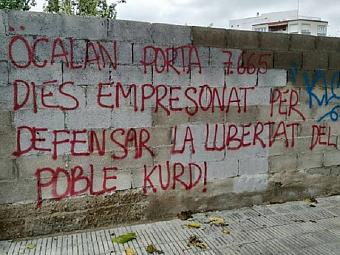 ÖCALAN PORTA 7.665
DIES EMPRESONAT PER
DEFENSAR LA LLIBERTAT DEL
POBLE KURD!